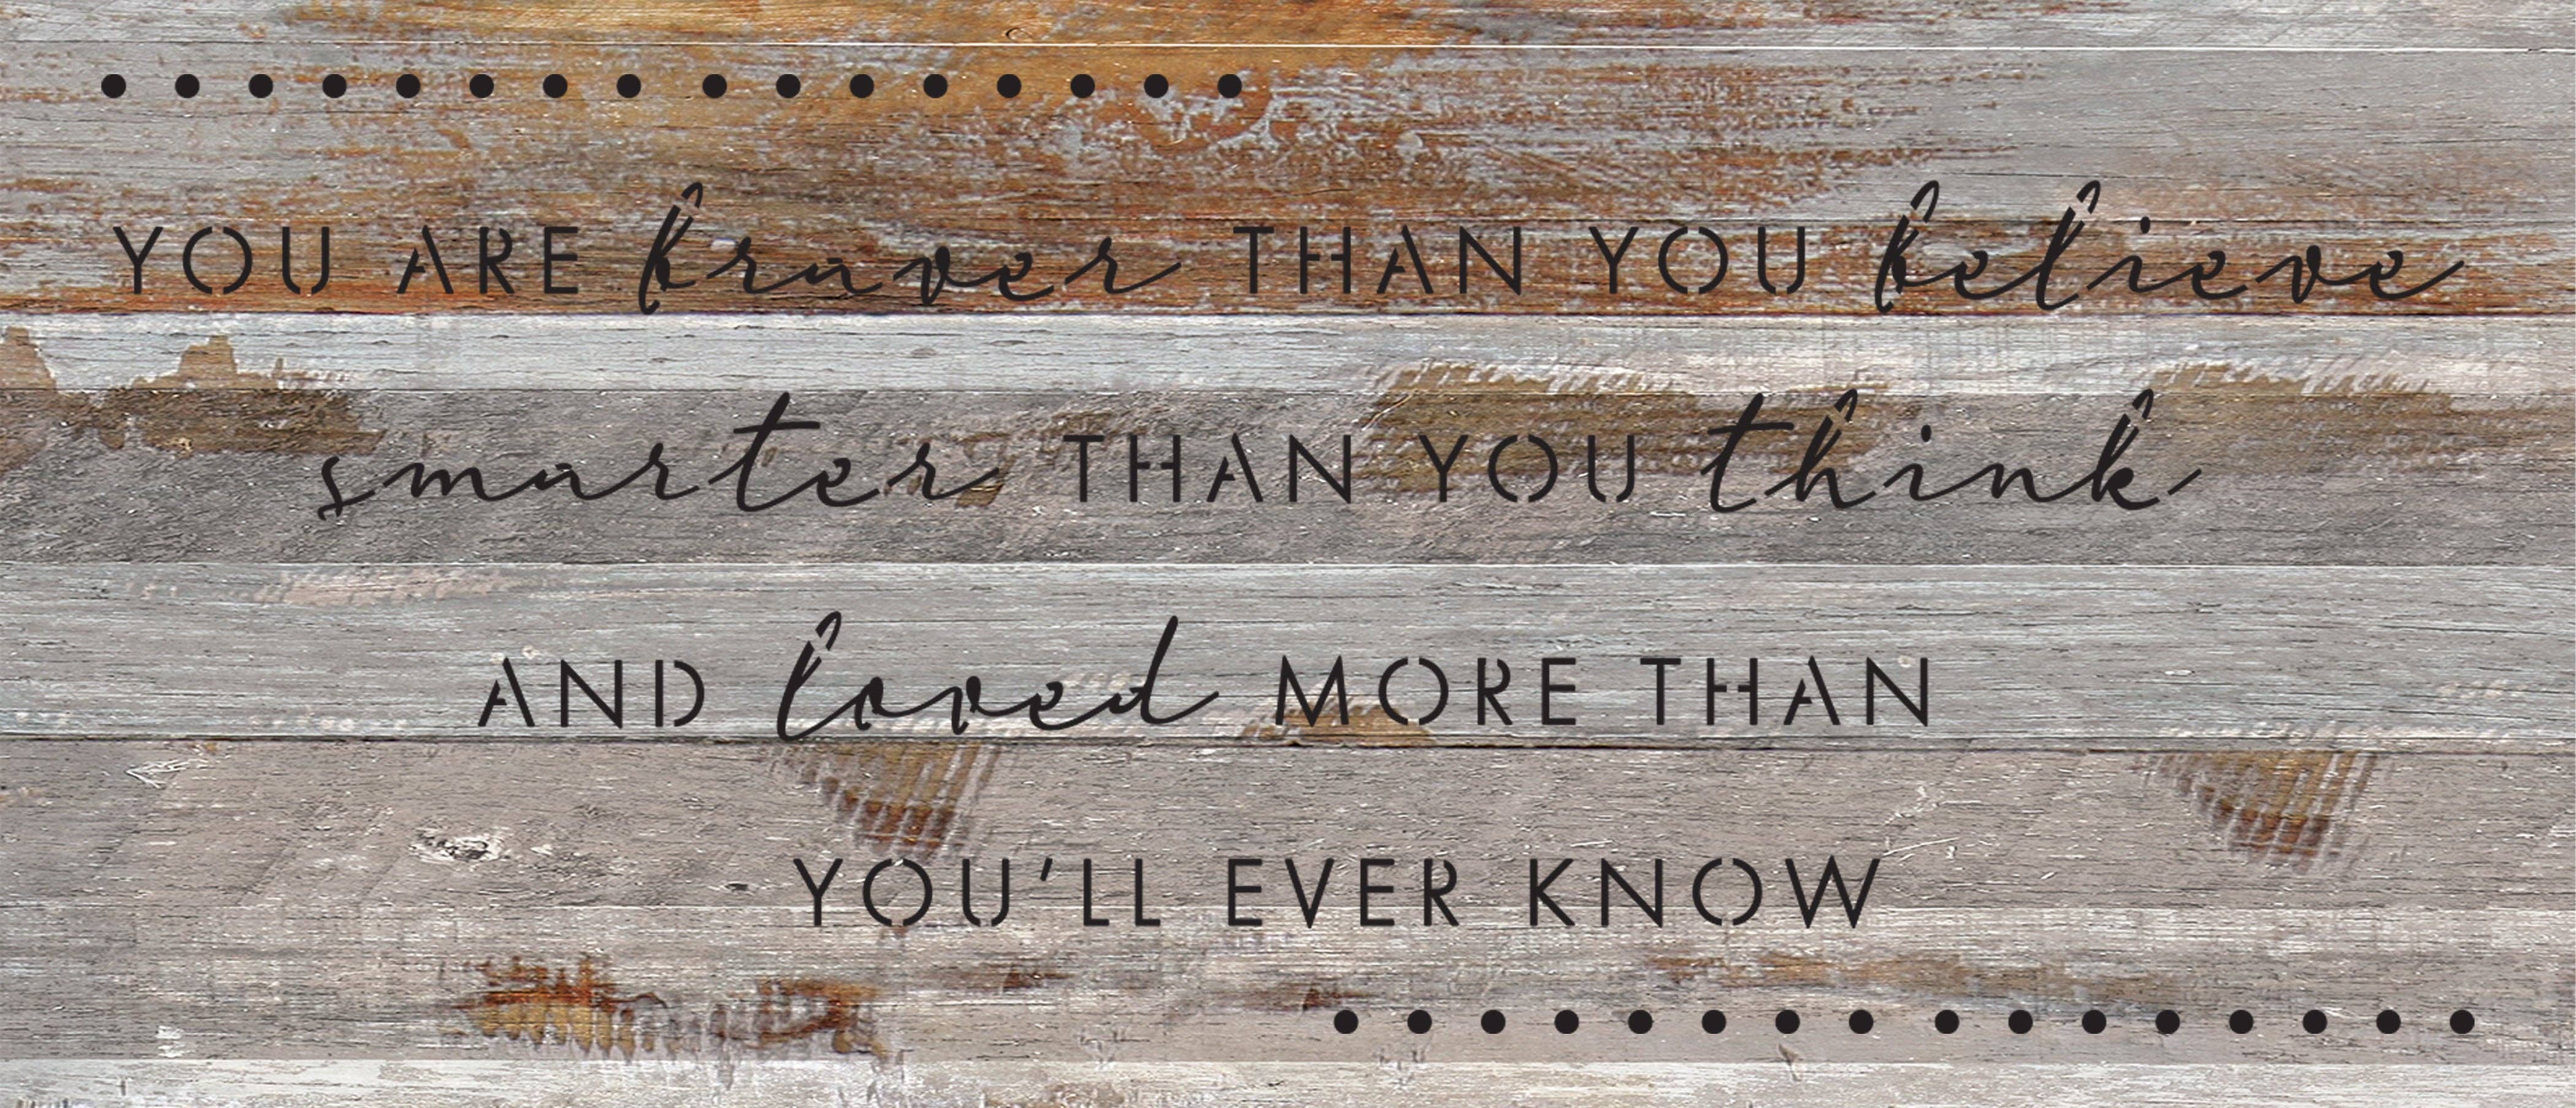 YOU ARE braver THAN YOU believe
smarter THAN YOU think
AND loved MORE THAN
YOU'LL EVER KNOW